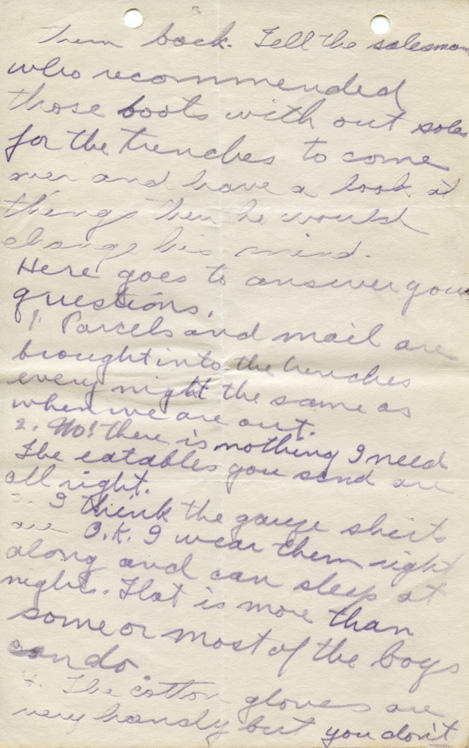 them back. Tell the salesman
who recommended
those boots with out soles
for the trenches to come
over and have a look at
things then he would
change his mind.
Here goes to answer your
questions.
1. Parcels and mail are
brought into the trenches
every night the same as
when we are out.
2. No! there is nothing I need
The eatables you send are
all right.
3. I think the gauze shirts
are O.K. I wear them right
along and can sleep at
nights. That is more than
some or most of the boys
can do.
4. The cotton gloves are
very handy but you don't